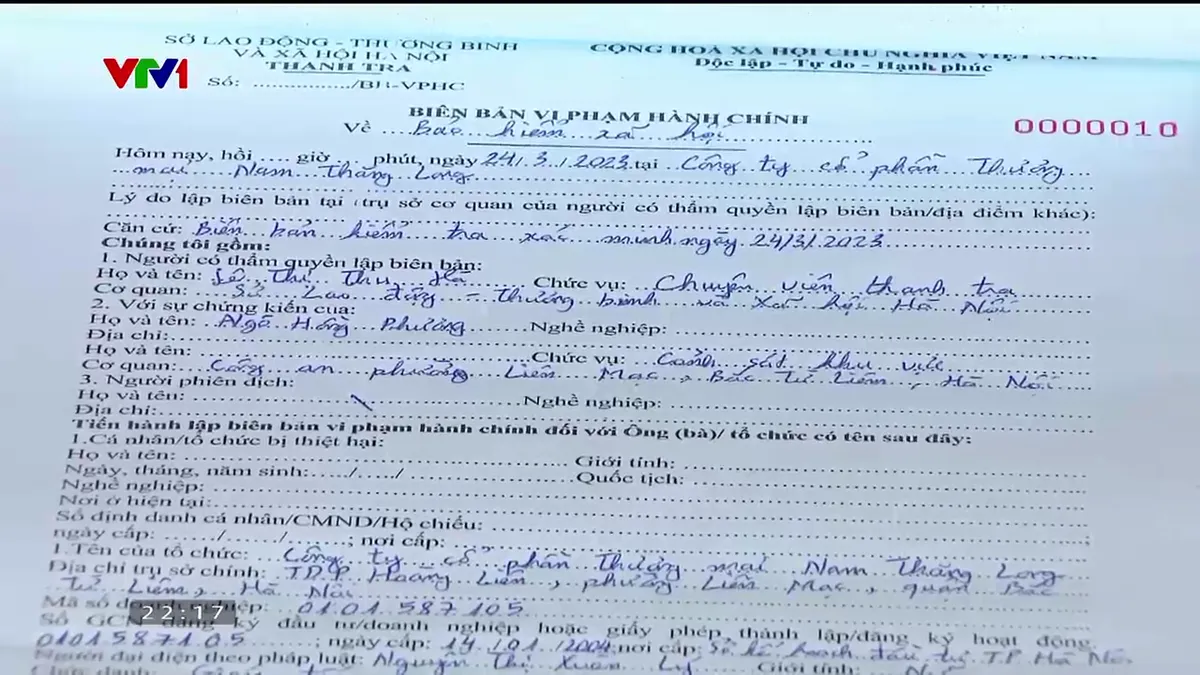 VTV1
SỞ LAO ĐỘNG - THƯƠNG BINH
VÀ XÃ HỘI HÀ NỘI
THANH TRA
Số: ................/BB-VPHC
CỘNG HOÀ XÃ HỘI CHỦ NGHĨA VIỆT NAM
Độc lập - Tự do - Hạnh phúc
BIÊN BẢN VI PHẠM HÀNH CHÍNH
Về .... Bảo hiểm xã hội
0000010
Hôm nay, hồi .... giờ .... phút, ngày 24/3/2023 tại Công ty cổ phần Thương
mại Nam Thăng Long
Lý do lập biên bản tại (trụ sở cơ quan của người có thẩm quyền lập biên bản/địa điểm khác):
Căn cứ: Biên bản kiểm tra xác minh ngày 24/3/2023
Chúng tôi gồm:
1. Người có thẩm quyền lập biên bản:
Họ và tên: Lê Thị Thu Hà Chức vụ: Chuyên viên thanh tra
Cơ quan: Sở Lao động - Thương binh và Xã hội Hà Nội
2. Với sự chứng kiến của:
Họ và tên: Ngô Hồng Phương Nghề nghiệp:
Địa chỉ:
Họ và tên: Chức vụ: Cảnh sát khu vực
Cơ quan: Công an phường Liên Mạc, Bắc Từ Liêm, Hà Nội
3. Người phiên dịch:
Họ và tên: Nghề nghiệp:
Địa chỉ:
Tiến hành lập biên bản vi phạm hành chính đối với Ông (bà)/ tổ chức có tên sau đây:
1.Cá nhân/tổ chức bị thiệt hại:
Họ và tên: Giới tính:
Ngày, tháng, năm sinh:...../...../ Quốc tịch:
Nghề nghiệp:
Nơi ở hiện tại:
Số định danh cá nhân/CMND/Hộ chiếu:
ngày cấp: ....../....../......; nơi cấp: ;
1.Tên của tổ chức: Công ty cổ phần Thương mại Nam Thăng Long
Địa chỉ trụ sở chính: TDP Hoàng Liên, phường Liên Mạc, quận Bắc
Từ Liêm, Hà Nội
Mã số doanh nghiệp: 0101587105
22:17
Số GCN đăng ký đầu tư/doanh nghiệp hoặc giấy phép thành lập/đăng ký hoạt động:
0101587105 ; ngày cấp: 14/01/2004 nơi cấp: Sở kế hoạch đầu tư TP Hà Nội
Người đại diện theo pháp luật: Nguyễn Thị Xuân Ly Giới tính: Nữ
Chức danh: